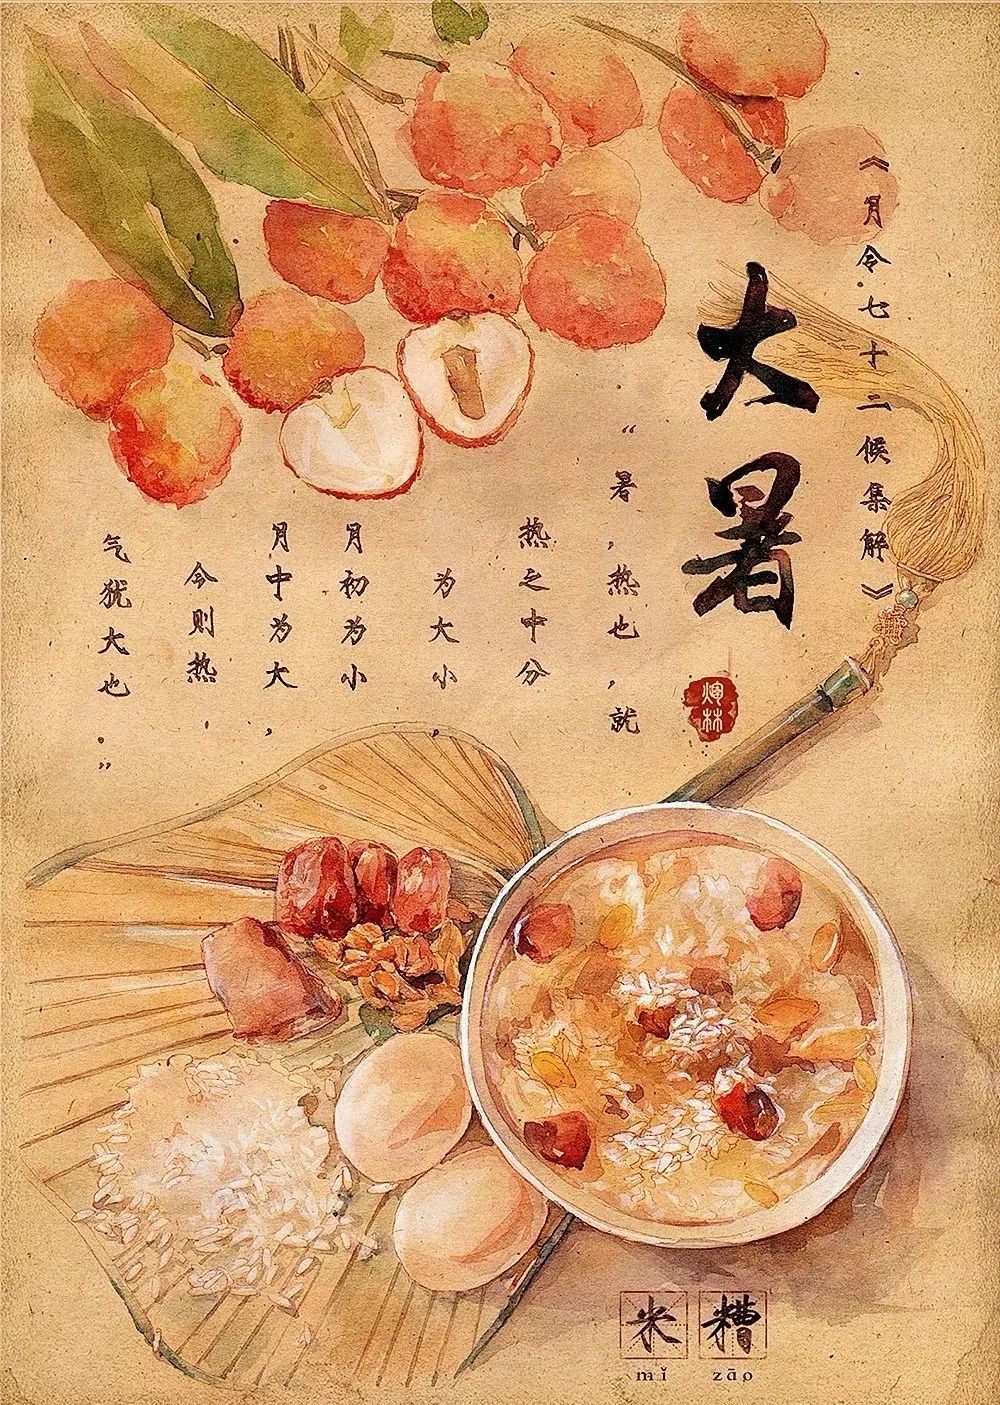 《月令七十二候集解》
大暑
“暑，热也，就
热之中分
为大小，
月初为小
月中为大，
今则热，
气犹大也。”
米糟
mǐ zāo